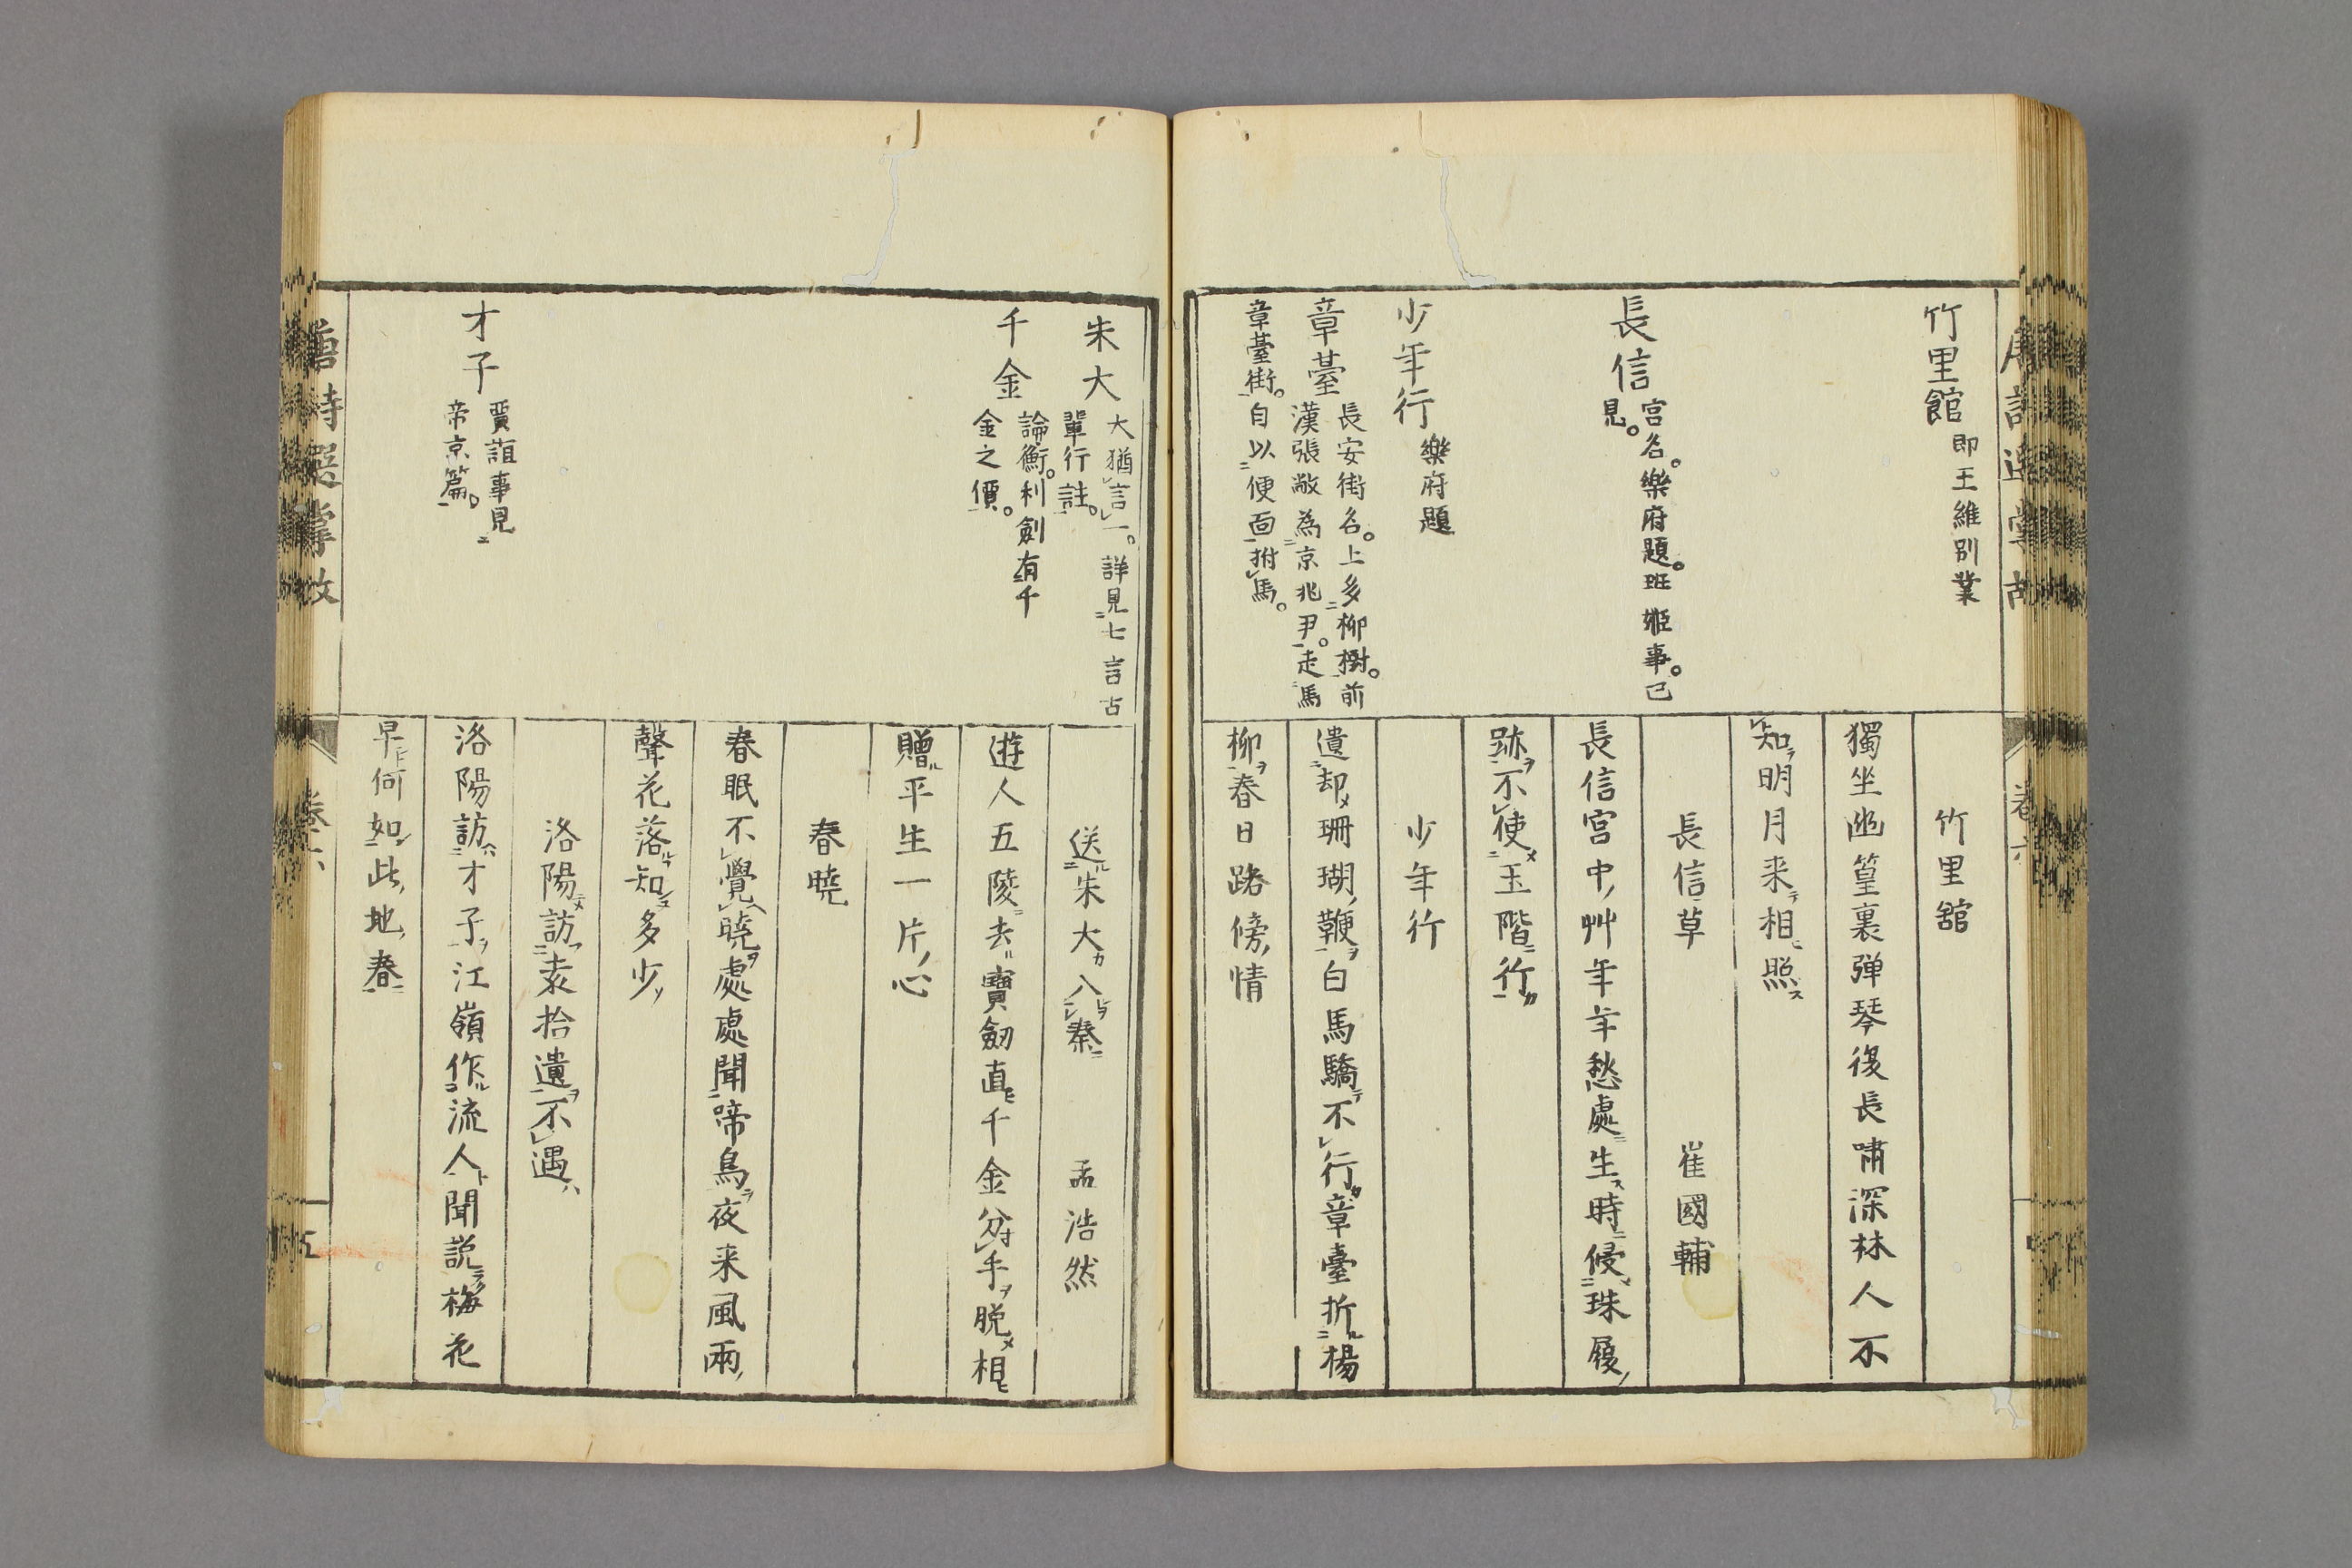 竹里館 即王維別業
長信 宮名。樂府題。班姫事。已
見。
少年行 樂府題
章臺 長安街名。上多柳樹。前
漢張敞為京兆尹。走馬
章臺街。自以便面拊馬。
竹里舘
獨坐幽篁裏弾琴復長嘯深林人不
知明月来相照
長信草 崔國輔
長信宮中艸年年愁處生時侵珠履
跡不使玉階行
少年行
遺却珊瑚鞭白馬驕不行章臺折楊
柳春日路傍情
朱大 大猶言一。詳見七言古
單行註。
千金 論衡。利劍有千
金之價。
才子 賈誼事見
帝京篇。
送朱大入秦 孟浩然
遊人五陵去寶劒直千金分手脱相
贈平生一片心
春曉
春眠不覺曉處處聞啼鳥夜来風雨
聲花落知多少
洛陽訪袁拾遺不遇
洛陽訪才子江嶺作流人聞説梅花
早何如此地春
唐詩選掌故
卷六
五